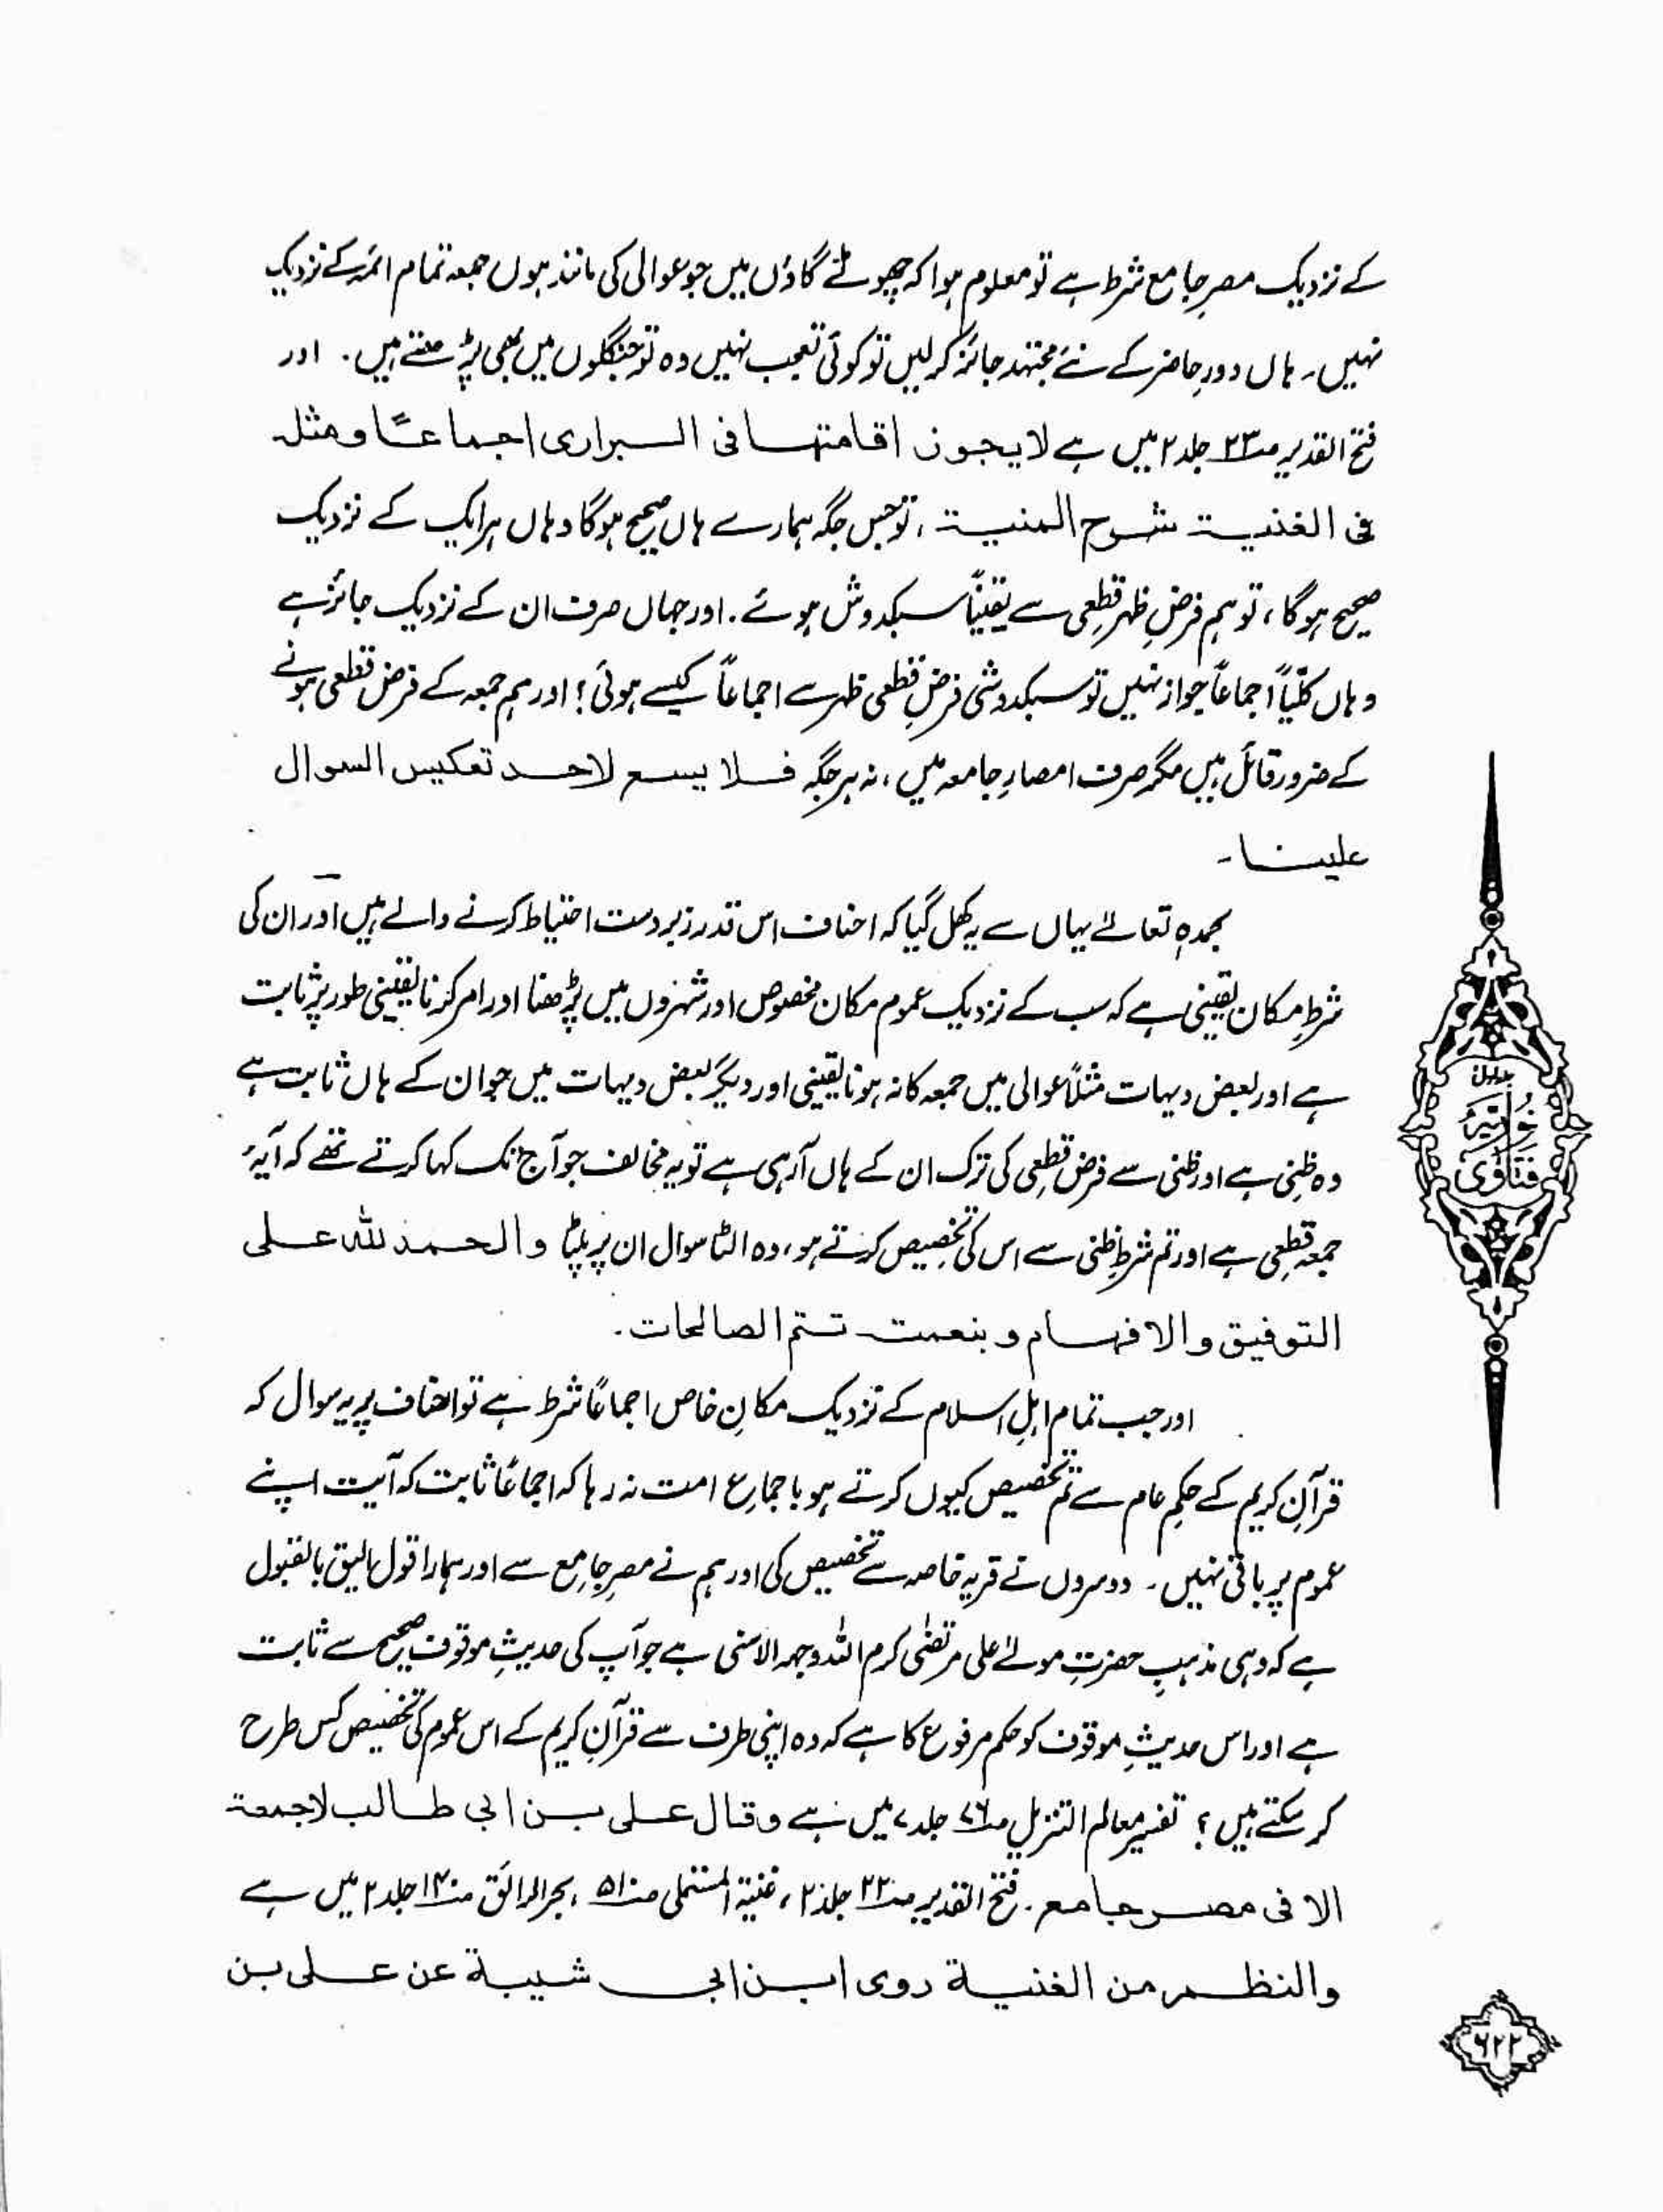 کے نزدیک مصرِ جامع شرط ہے تو معلوم ہوا کہ چھوٹے گاؤں میں جو عوالی کی مانند ہوں جمعہ تمام ائمہ کے نزدیک
نہیں۔ ہاں دورِ حاضر کے نئے مجتہد جائز کر لیں تو کوئی تعجب نہیں وہ تو جنگلوں میں بھی پڑھتے ہیں۔ اور
فتح القدیر ص۲۳ جلد ۲ میں ہے لا یجوز اقامتها فی البراری اجماعًا و مثله
فی الغنیة شرح المنیة ، تو جس جگہ ہمارے ہاں صحیح ہوگا وہاں ہر ایک کے نزدیک
صحیح ہوگا، تو ہم فرضِ ظہر قطعی سے یقیناً سبکدوش ہوئے۔ اور جہاں صرف ان کے نزدیک جائز ہے
وہاں کلیّاً اجماعاً جواز نہیں تو سبکدوشی فرضِ قطعی ظہر سے اجماعاً کیسے ہوئی؟ اور ہم جمعہ کے فرض قطعی ہونے
کے ضرور قائل ہیں مگر صرف امصارِ جامعہ میں، نہ ہر جگہ فلا یسع لاحد تعکیس السوال
علینا۔
بحمدہٖ تعالےٰ یہاں سے یہ کھل گیا کہ احناف اس قدر زبردست احتیاط کرنے والے ہیں اور ان کی
شرطِ مکان یقینی ہے کہ سب کے نزدیک عموم مکان مخصوص اور شہروں میں پڑھنا اور امر کرنا یقینی طور پر ثابت
ہے اور بعض دیہات مثلاً عوالی میں جمعہ کا نہ ہونا یقینی اور دیگر بعض دیہات میں جو ان کے ہاں ثابت ہے
وہ ظنی ہے اور ظنی سے فرض قطعی کی ترک ان کے ہاں آ رہی ہے تو یہ مخالف جو آج تک کہا کرتے تھے کہ آیۂ
جمعہ قطعی ہے اور تم شرطِ ظنی سے اس کی تخصیص کرتے ہو، وہ الٹا سوال ان پر پلٹا والحمد للہ علی
التوفیق والافهام و بنعمته تتم الصالحات۔
اور جب تمام اہلِ اسلام کے نزدیک مکانِ خاص اجماعاً شرط ہے تو احناف پر یہ سوال کہ
قرآنِ کریم کے حکمِ عام سے تم تخصیص کیوں کرتے ہو باجماعِ امت نہ رہا کہ اجماعاً ثابت کہ آیت اپنے
عموم پر باقی نہیں۔ دوسروں نے قریہ خاصہ سے تخصیص کی اور ہم نے مصرِ جامع سے اور ہمارا قول الیق بالقبول
ہے کہ وہی مذہبِ حضرتِ مولےٰ علی مرتضٰی کرم اللہ وجہہ الاسنی ہے جو آپ کی حدیثِ موقوف صحیح سے ثابت
ہے اور اس حدیثِ موقوف کو حکم مرفوع کا ہے کہ وہ اپنی طرف سے قرآنِ کریم کے اس عموم کی تخصیص کس طرح
کر سکتے ہیں؟ تفسیر معالم التنزیل جلد ۷ میں ہے وقال علی بن ابی طالب لا جمعة
الا فی مصر جامع۔ فتح القدیر ص۲۲ جلد ۲، غنیة المستملی ص۵۱۰، بحر الرائق ص۱۴۰ جلد ۲ میں ہے
والنظم من الغنیة روی ابن ابی شیبة عن علی بن
جلد۱
نوریہ
فتاوٰی
۶۲۲